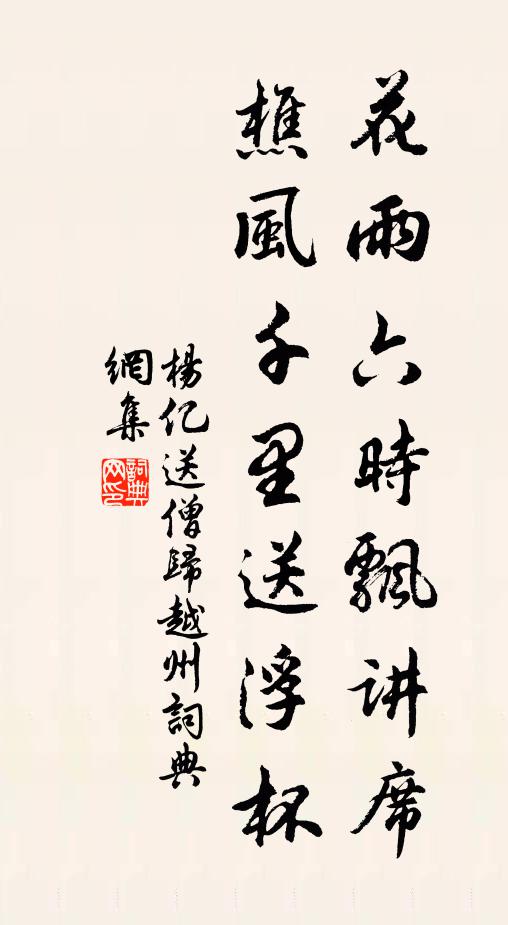 花雨六時飄讲席
樵風千里送浮杯
楊亿送僧歸越州詞典
網集
詞典
网印